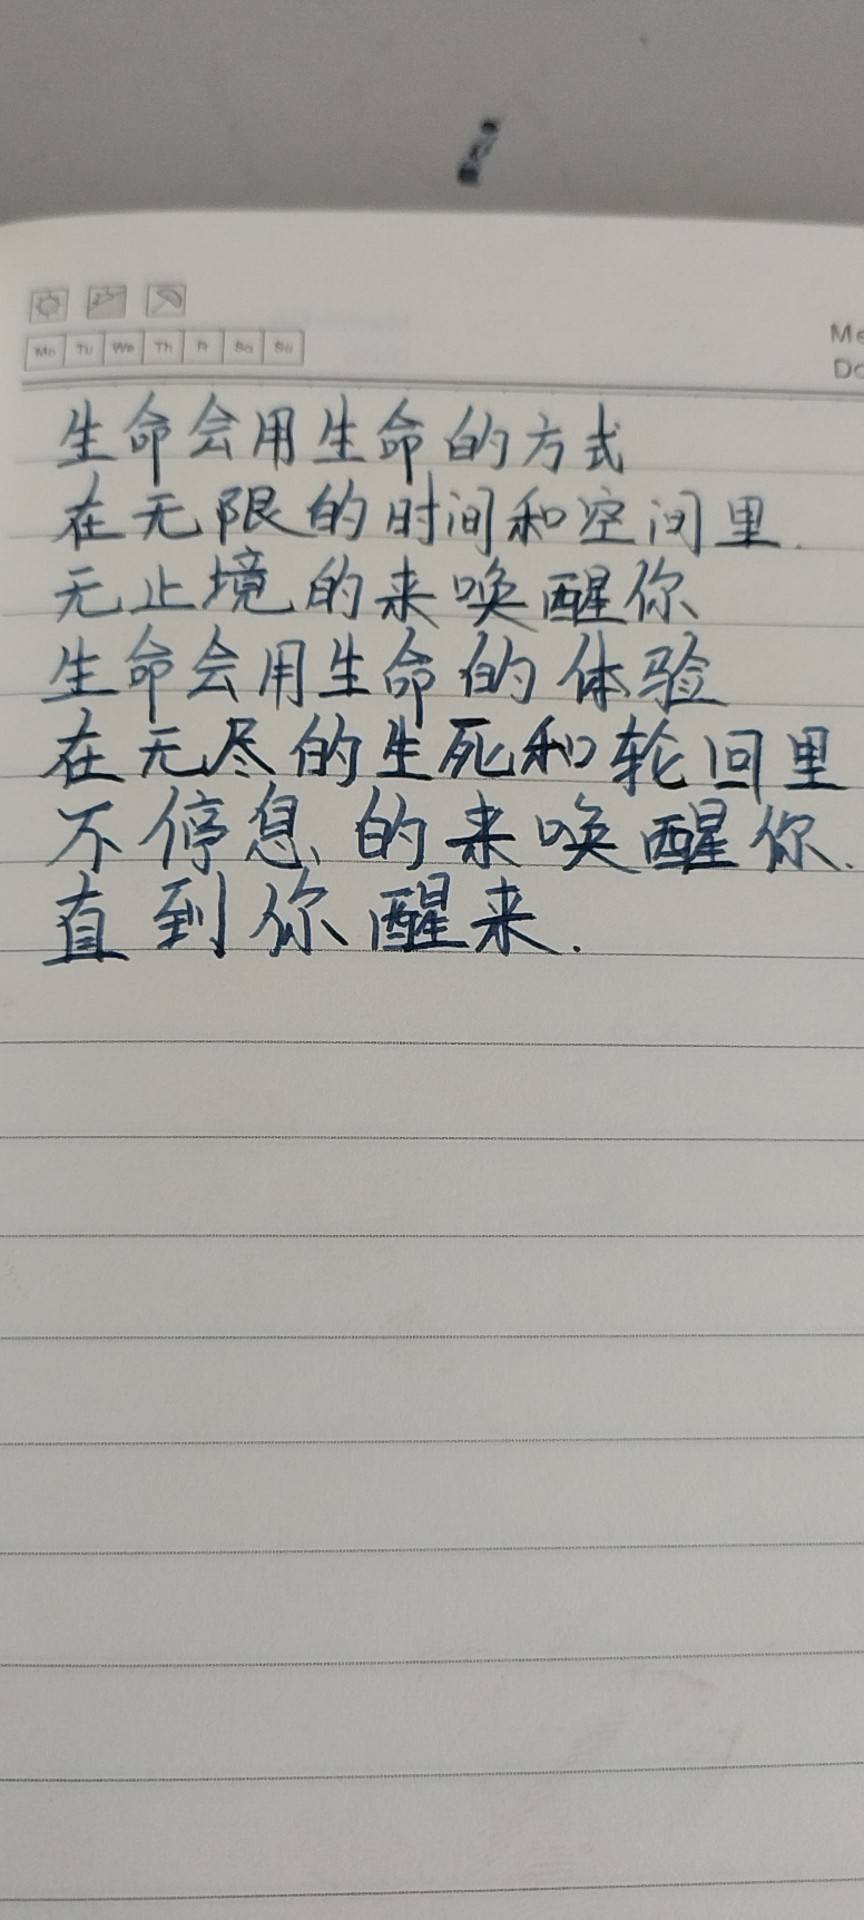 Mo Tu We Th Fr Sa Su
生命会用生命的方式
在无限的时间和空间里.
无止境的来唤醒你
生命会用生命的体验
在无尽的生死和轮回里
不停息的来唤醒你.
直到你醒来.